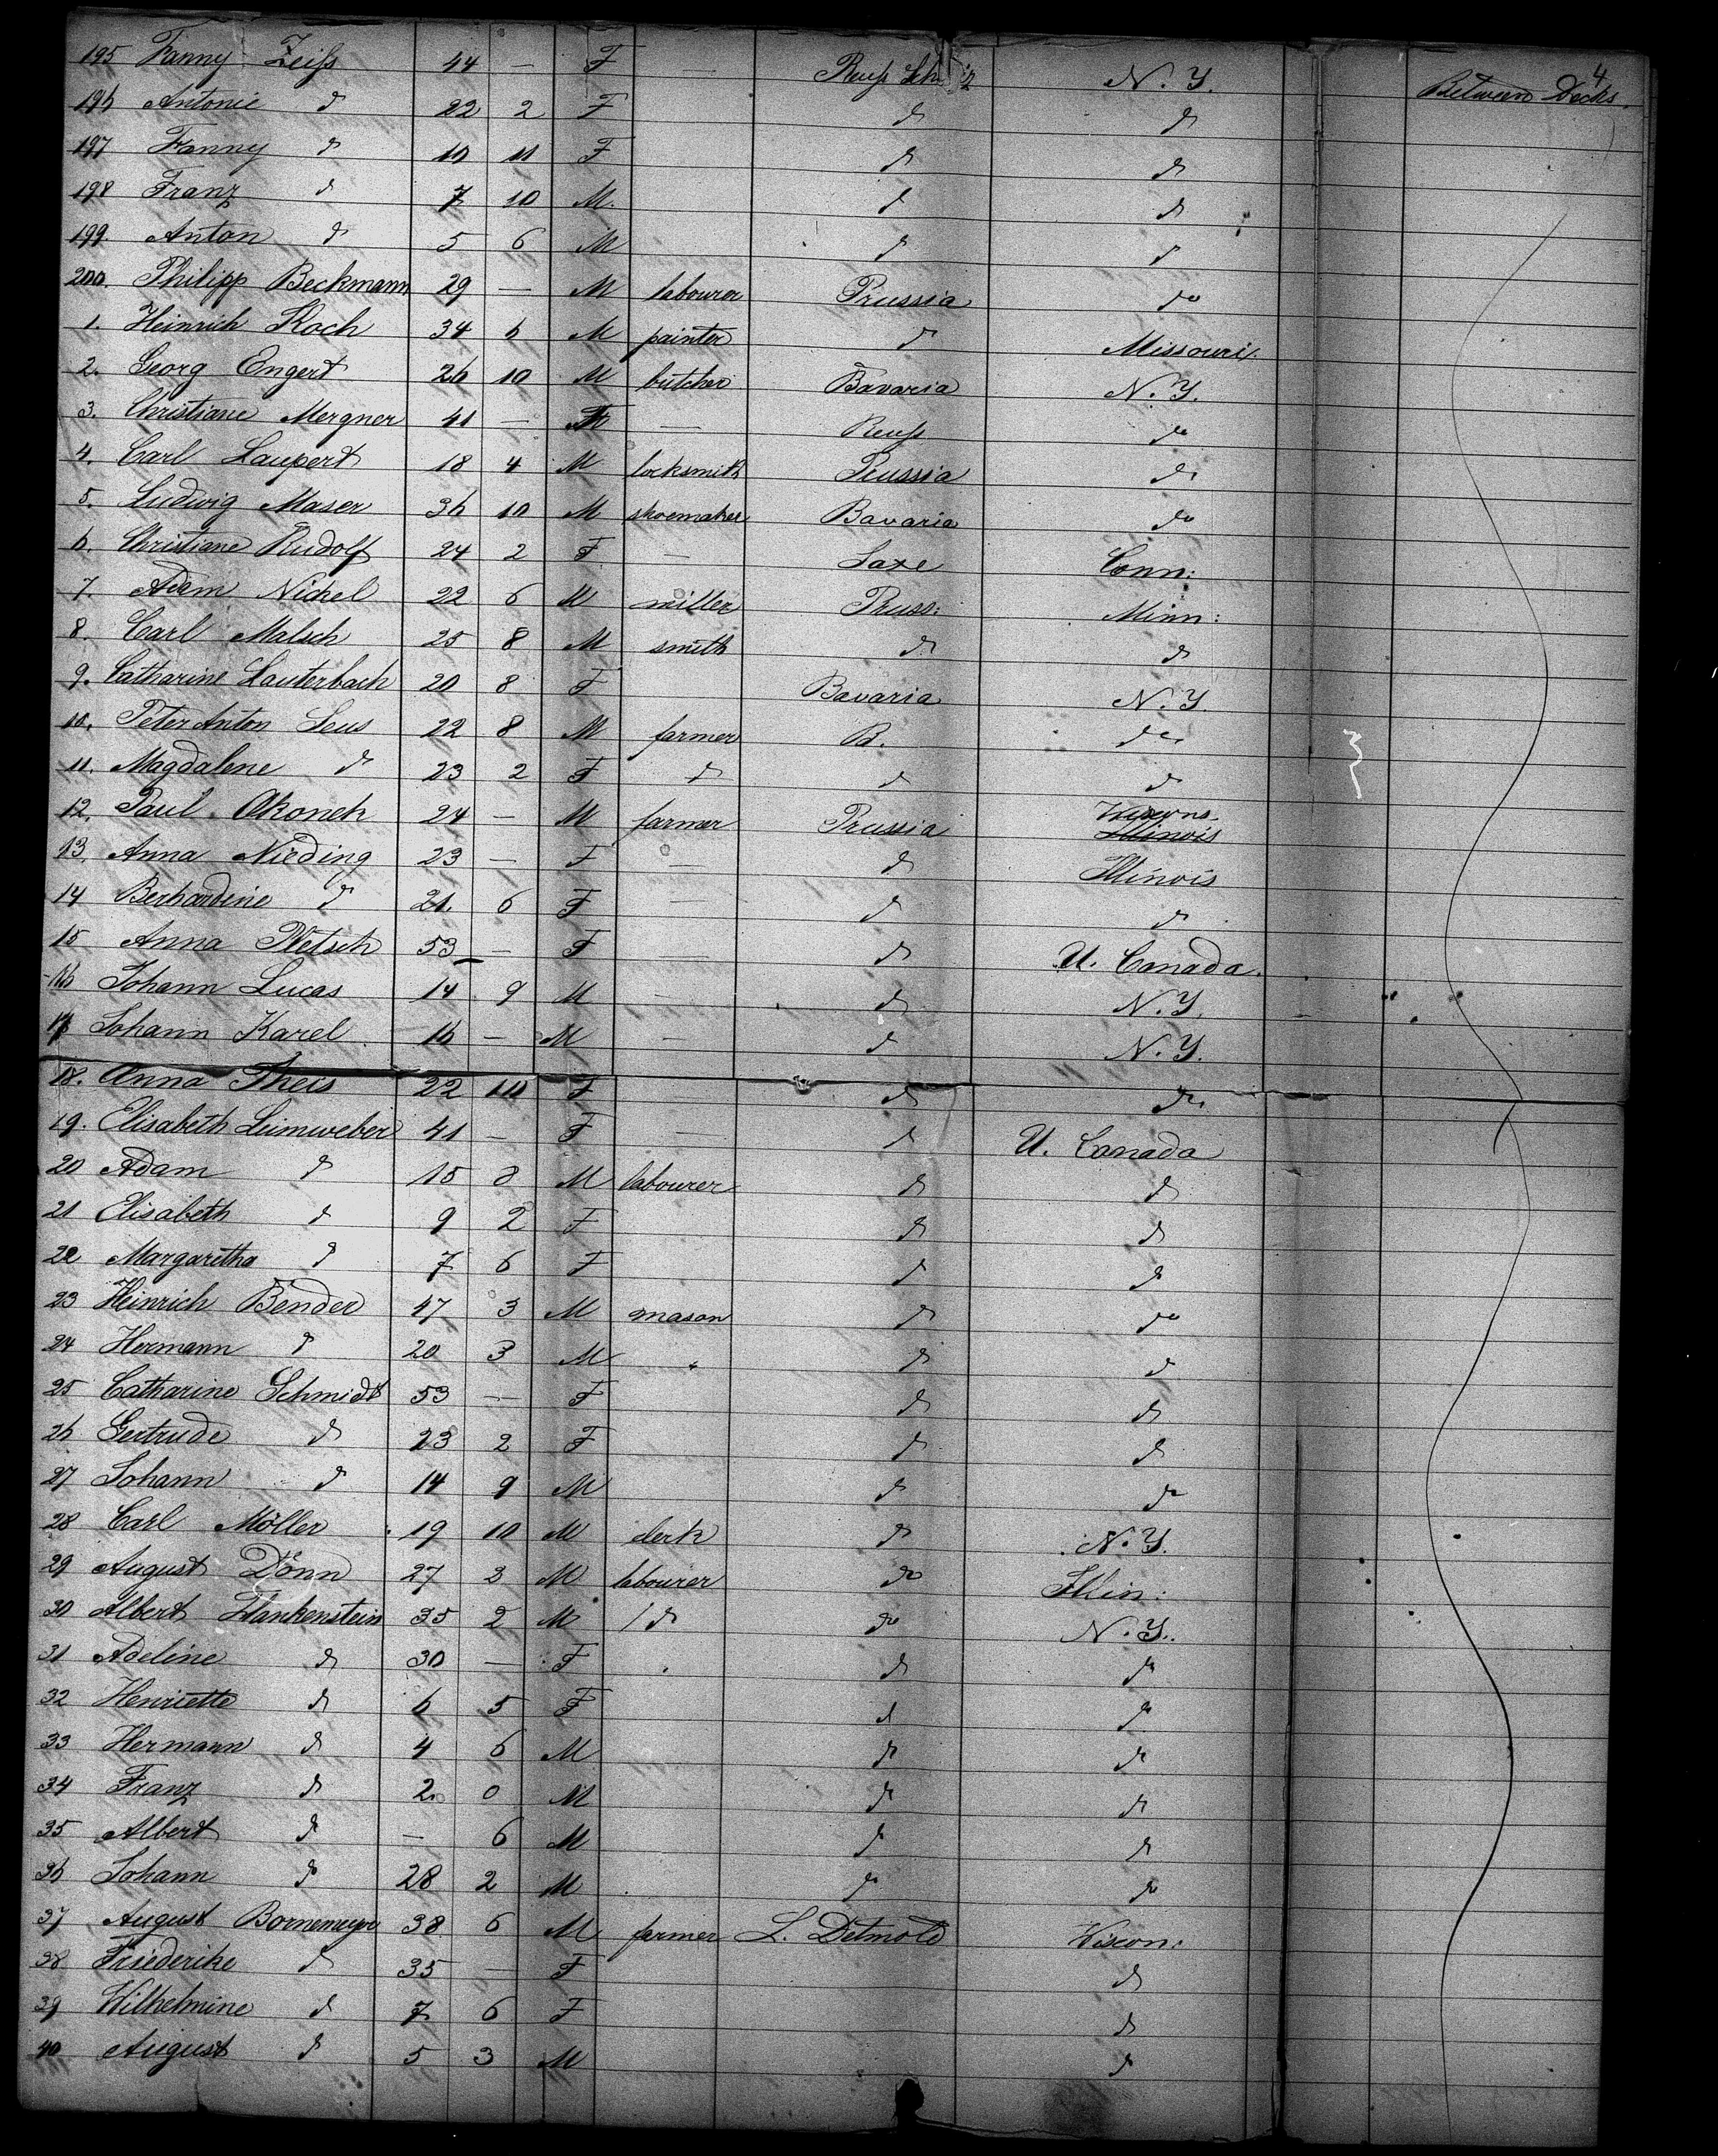 4
195 Fanny Zeiss 44 — F — Reuss Schleiz N. Y. Between Decks.
196 Antonie do 22 2 F do do
197 Fanny do 10 11 F do do
198 Franz do 7 10 M. do do
199 Anton do 5 6 M do do
200. Philipp Beckmann 29 — M labourer Prussia do
1. Heinrich Koch 34 6 M painter do Missouri.
2. Georg Engert 26 10 M butcher Bavaria N. Y.
3. Christiane Mergner 41 — F — Reuss do
4. Carl Laupert 18 4 M locksmith Prussia do
5. Ludwig Maser 36 10 M shoemaker Bavaria do
6. Christiane Rudolf 24 2 F — Saxe Conn:
7. Adam Nickel 22 6 M miller Pruss: Minn:
8. Carl Malsch 25 8 M smith do do
9. Catharine Lauterbach 20 8 F Bavaria N. Y.
10. Peter Anton Leus 22 8 M farmer B. do
11. Magdalene do 23 2 F do do do
12. Paul Okoneck 24 — M farmer Prussia Illinois
13. Anna Nieding 23 — F — do Illinois
14 Berhardine do 21. 6 F — do do
15 Anna Pletsch 53 — F — do U. Canada.
16 Johann Lucas 14 9 M — do N. Y.
17 Johann Karel 16 — M — do N. Y.
18. Anna Theis 22 10 F — do do
19. Elisabeth Leimweber 41 — F — do U. Canada
20 Adam do 15 8 M labourer do do
21 Elisabeth do 9 2 F do do
22 Margaretha do 7 6 F do do
23 Heinrich Bender 47 3 M mason do do
24 Hermann do 20 3 M " do do
25 Catharine Schmidt 53 — F do do
26 Gertrude do 23 2 F do do
27 Johann do 14 9 M do do
28 Carl Möller 19 10 M clerk do N. Y.
29 August Dönn 27 3 M labourer do Illin:
30 Albert Frankenstein 35 2 M do do N. Y.
31 Adeline do 30 — F do do
32 Henriette do 6 5 F do do
33 Hermann do 4 6 M do do
34 Franz do 2. 0 M do do
35 Albert do — 6 M do do
36 Johann do 28 2 M do do
37 August Bornemeyer 38 6 M farmer L. Detmold Wiscon:
38 Friederike do 35 — F do
39 Wilhelmine do 7 6 F do
40 August do 5 3 M do